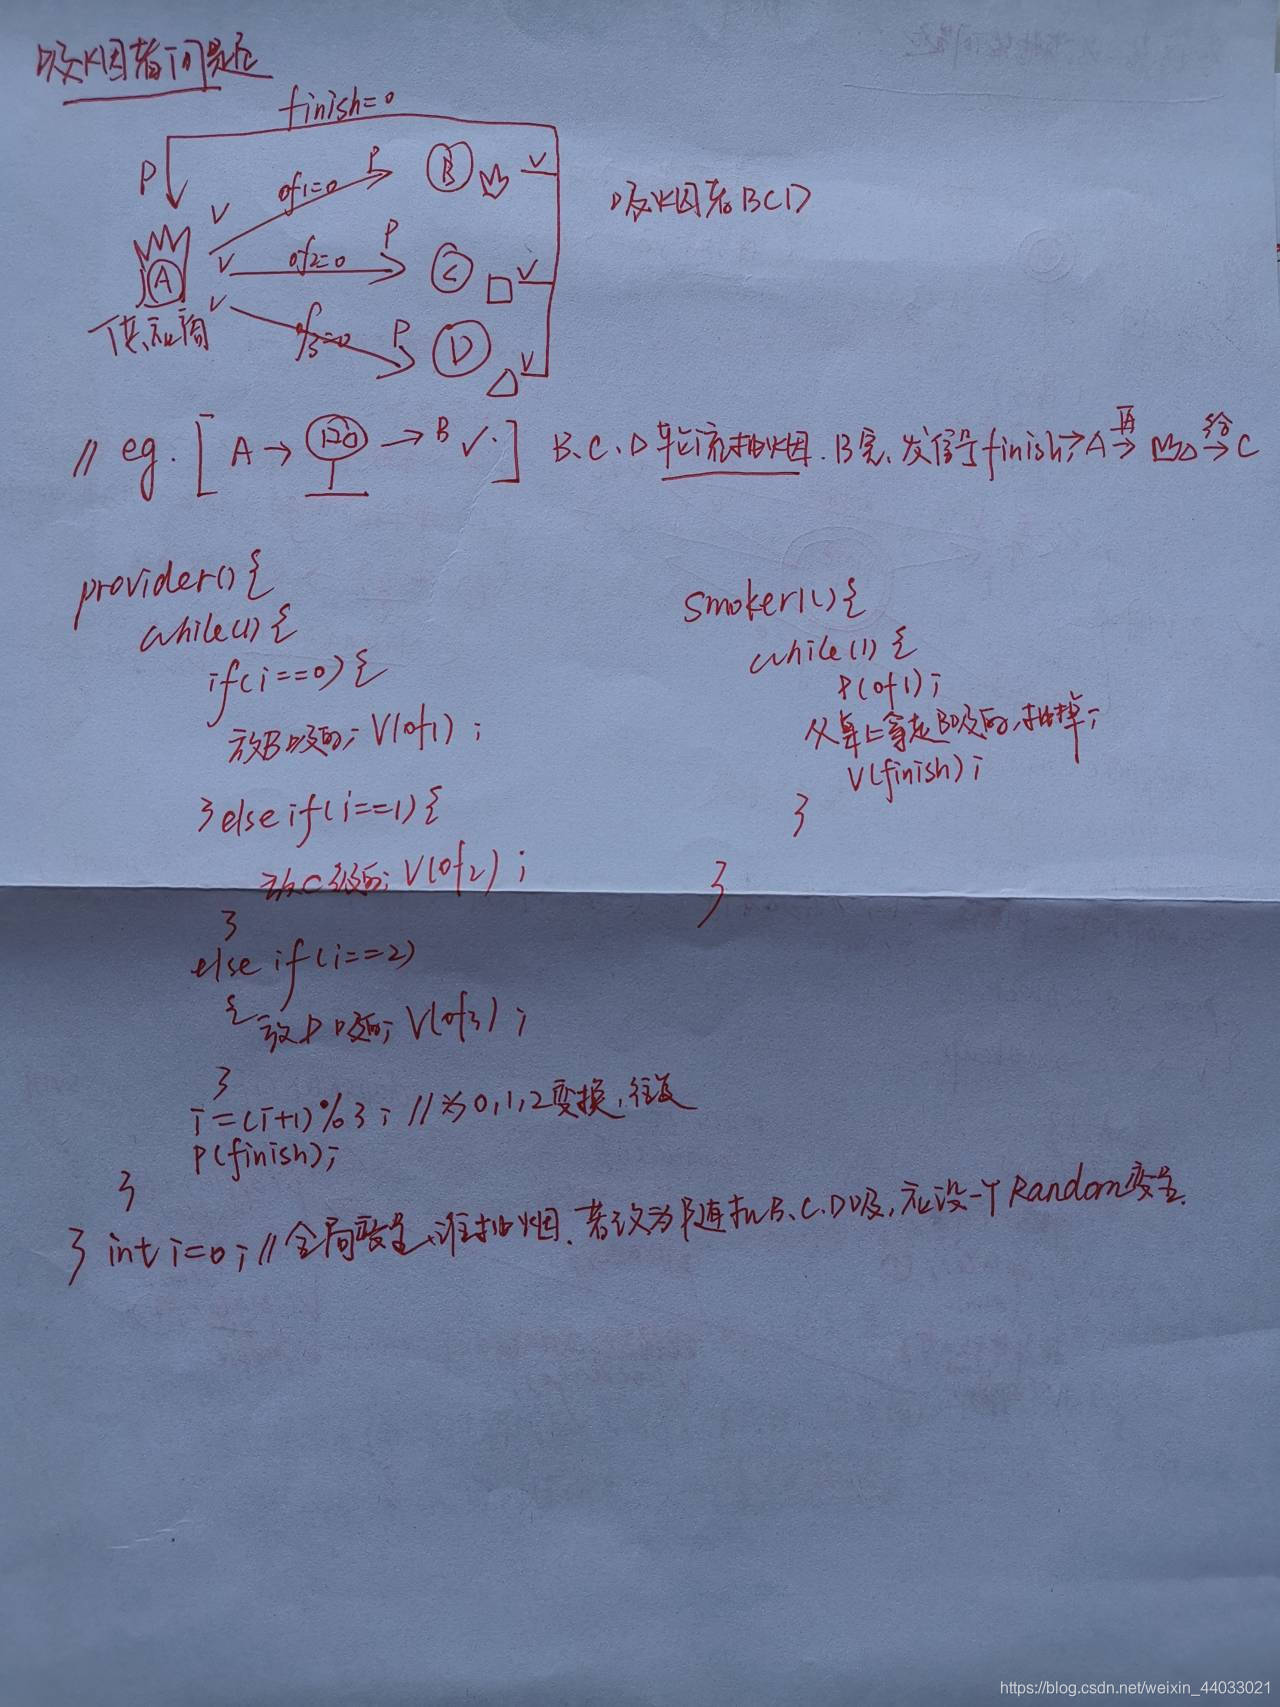 吸烟者问题
finish=0
P
V
of1=0
P
B
V
吸烟者BCD
V
of2=0
P
C
V
A
V
of3=0
P
D
V
供应商
// eg. [ A → → B ✓. ] B、C、D轮流抽烟. B完、发信号finish→A 再→ 给→ C
provider() {
while(1) {
if(i==0) {
放B吸的; V(of1);
} else if(i==1) {
放C吸的; V(of2);
}
else if(i==2)
{ 放D吸的; V(of3);
}
i=(i+1)%3; // 为0,1,2变换,往复
P(finish);
}
} int i=0; // 全局变量、谁抽烟. 若改为随机B、C、D吸, 应设一个Random变量.
smoker1() {
while(1) {
P(of1);
从桌上拿走B吸的,抽掉;
V(finish);
}
}
https://blog.csdn.net/weixin_44033021